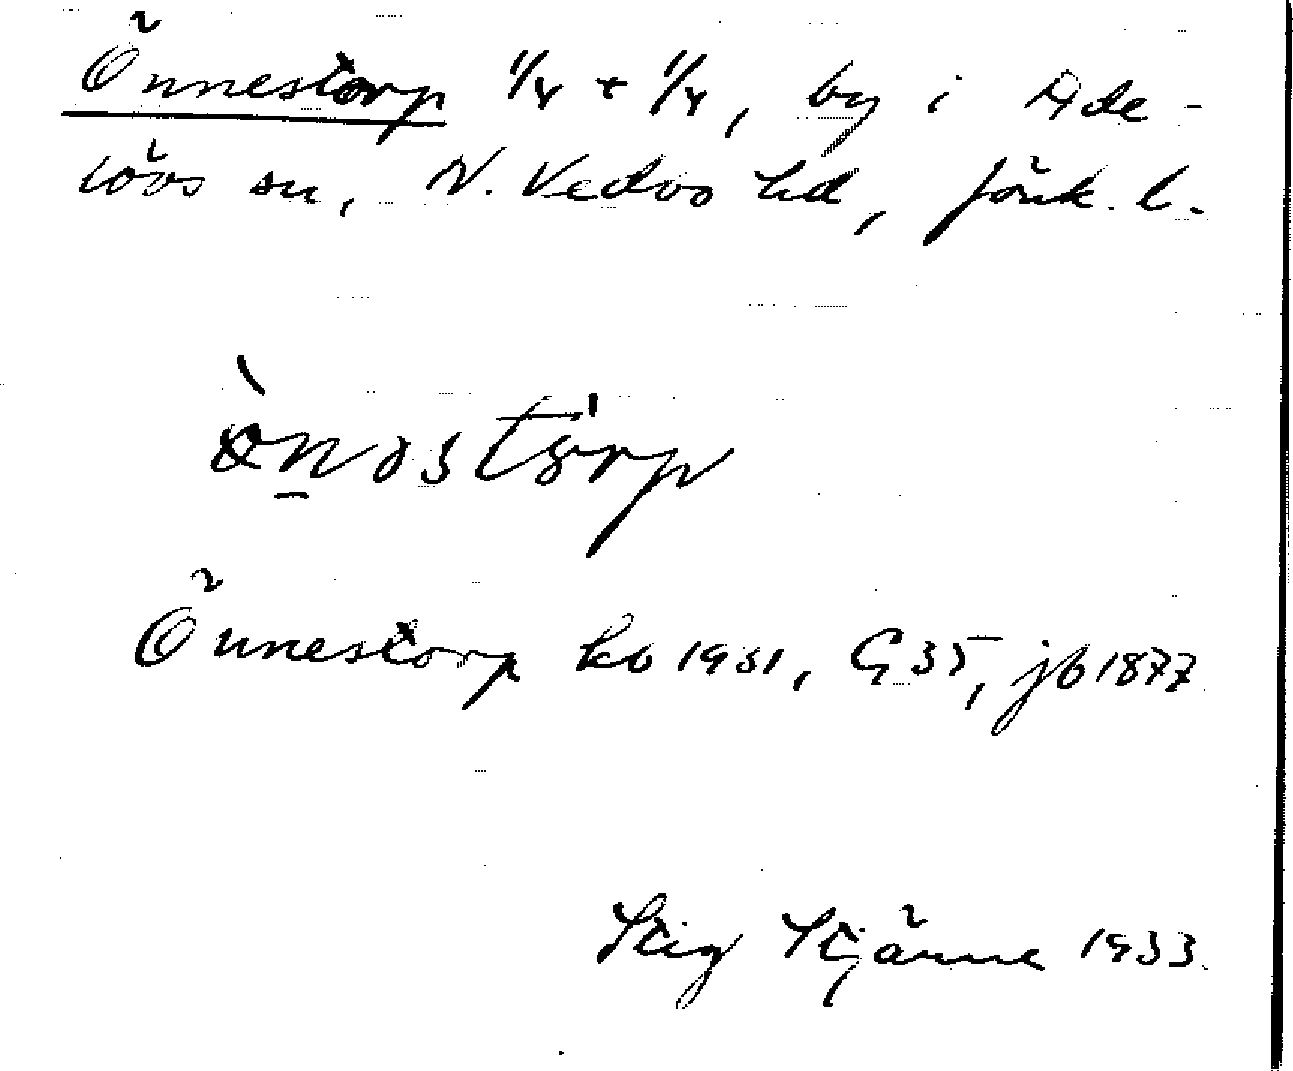 Önnestorp 1/4 + 1/4, by i Ade-
lövs sn, N. Vedbo hd, Jönk. l.
Önnestorp kb 1931, G 35, jb 1877
Stig Stjärne 1933.